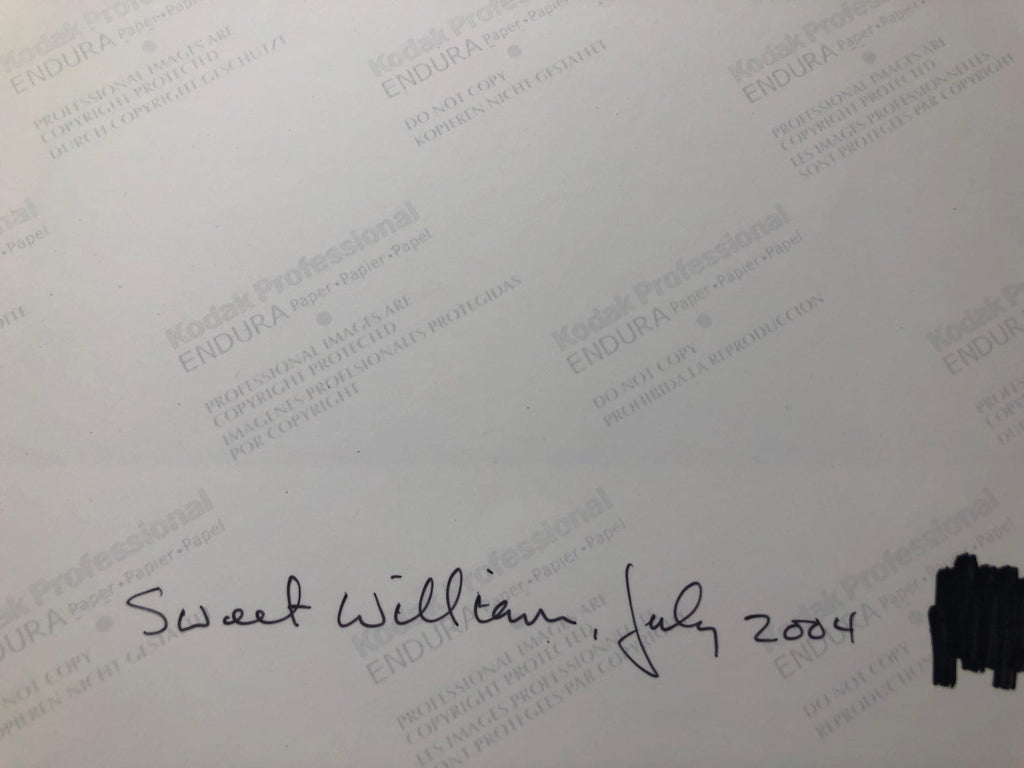 Kodak Professional
ENDURA Paper•Papier
PROFESSIONAL IMAGES ARE
COPYRIGHT PROTECTED
DURCH COPYRIGHT GESCHÜTZT
Kodak Professional
ENDURA Paper•Papier•Papel
DO NOT COPY
KOPIEREN NICHT GESTATTET
Kodak Professional
ENDURA Paper•Papier
PROFESSIONAL IMAGES ARE
COPYRIGHT PROTECTED
LES IMAGES PROFESSIONNELLES
SONT PROTÉGÉES PAR COPYRIGHT
•Papel
Kodak Professional
ENDURA Paper•Papier•Papel
PROFESSIONAL IMAGES ARE
COPYRIGHT PROTECTED
IMAGENES PROFESIONALES PROTEGIDAS
POR COPYRIGHT
Kodak Professional
ENDURA Paper•Papier•Papel
DO NOT COPY
PROHIBIDA LA REPRODUCCION
Kodak
ENDURA
Kodak Professional
ENDURA Paper•Papier•Papel
DO NOT COPY
KOPIEREN NICHT
Kodak Professional
ENDURA Paper•Papier•Papel
PROFESSIONAL IMAGES ARE
COPYRIGHT PROTECTED
LES IMAGES
SONT PROTÉGÉES PAR
Kodak Professional
ENDURA Papel
DO NOT COPY
REPRODUCTION
Sweet William, July 2004